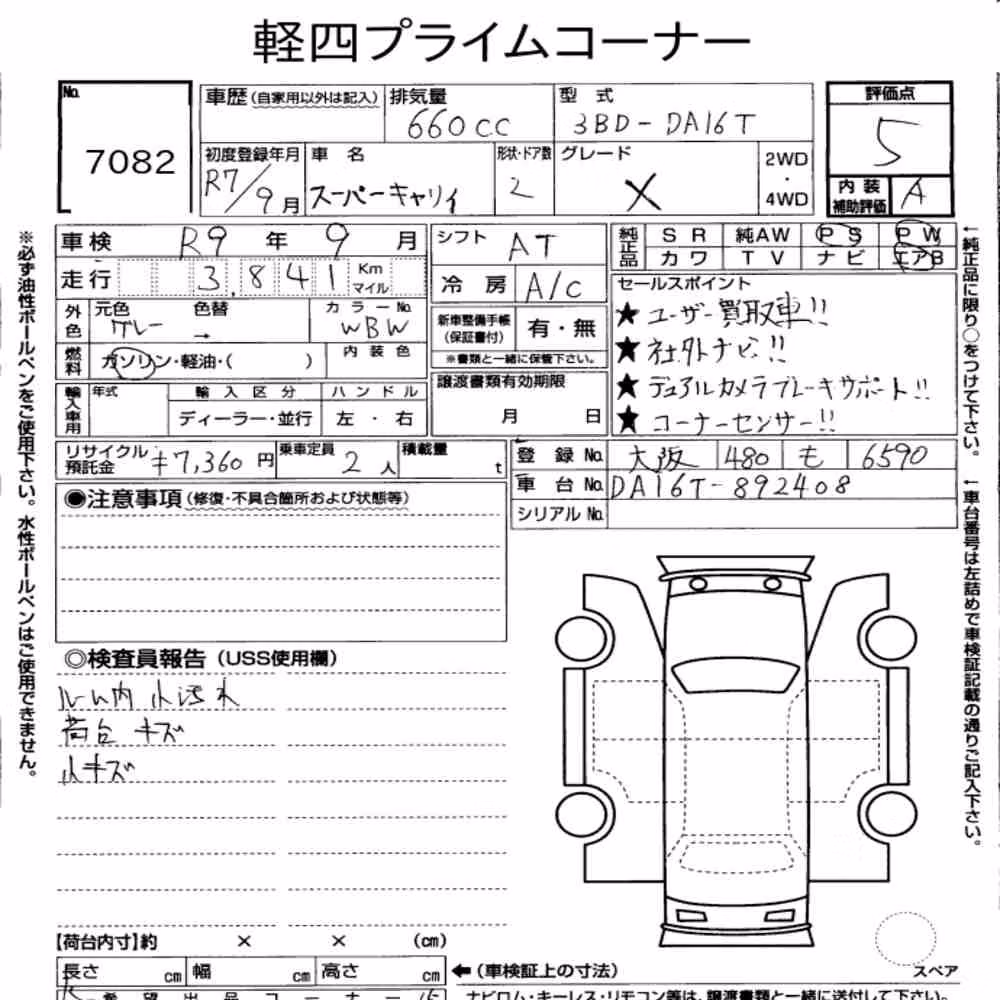 軽四プライムコーナー
No. 7082
車歴 (自家用以外は記入) 排気量 660cc 型式 3BD-DA16T
評価点 5
初度登録年月 R7/9月 車名 スーパーキャリイ 形状・ドア数 2 グレード X 2WD・4WD
内装補助評価 A
車検 R9年 9月
シフト AT
純正品 SR 純AW PS PW
カワ TV ナビ エアB
走行 3,841 Km マイル
冷房 A/C
外色 元色 グレー 色替 → カラーNo. WBW
新車整備手帳 (保証書付) 有・無
※書類と一緒に保管下さい。
燃料 ガソリン・軽油・( ) 内装色
セールスポイント
★ ユーザー買取車!!
★ 社外ナビ!!
★ デュアルカメラブレーキサポート!!
★ コーナーセンサー!!
輸入車用 年式 輸入区分 ハンドル
ディーラー・並行 左・右
譲渡書類有効期限
月 日
リサイクル預託金 ¥7,360円 乗車定員 2人 積載量 t
登録No. 大阪 480 も 6590
車台No. DA16T-892408
シリアルNo.
◉注意事項 (修復・不具合箇所および状態等)
◎検査員報告 (USS使用欄)
ルーム内 小汚れ
荷台 キズ
小キズ
【荷台内寸】約 × × (cm)
長さ cm 幅 cm 高さ cm
←(車検証上の寸法)
スペア
希望出品コーナー名
ナビロム・キーレス・リモコン等は、譲渡書類と一緒に送付して下さい。
※必ず油性ボールペンをご使用下さい。水性ボールペンはご使用できません。
←純正品に限り○をつけて下さい。
←車台番号は左詰めで車検証記載の通りご記入下さい。